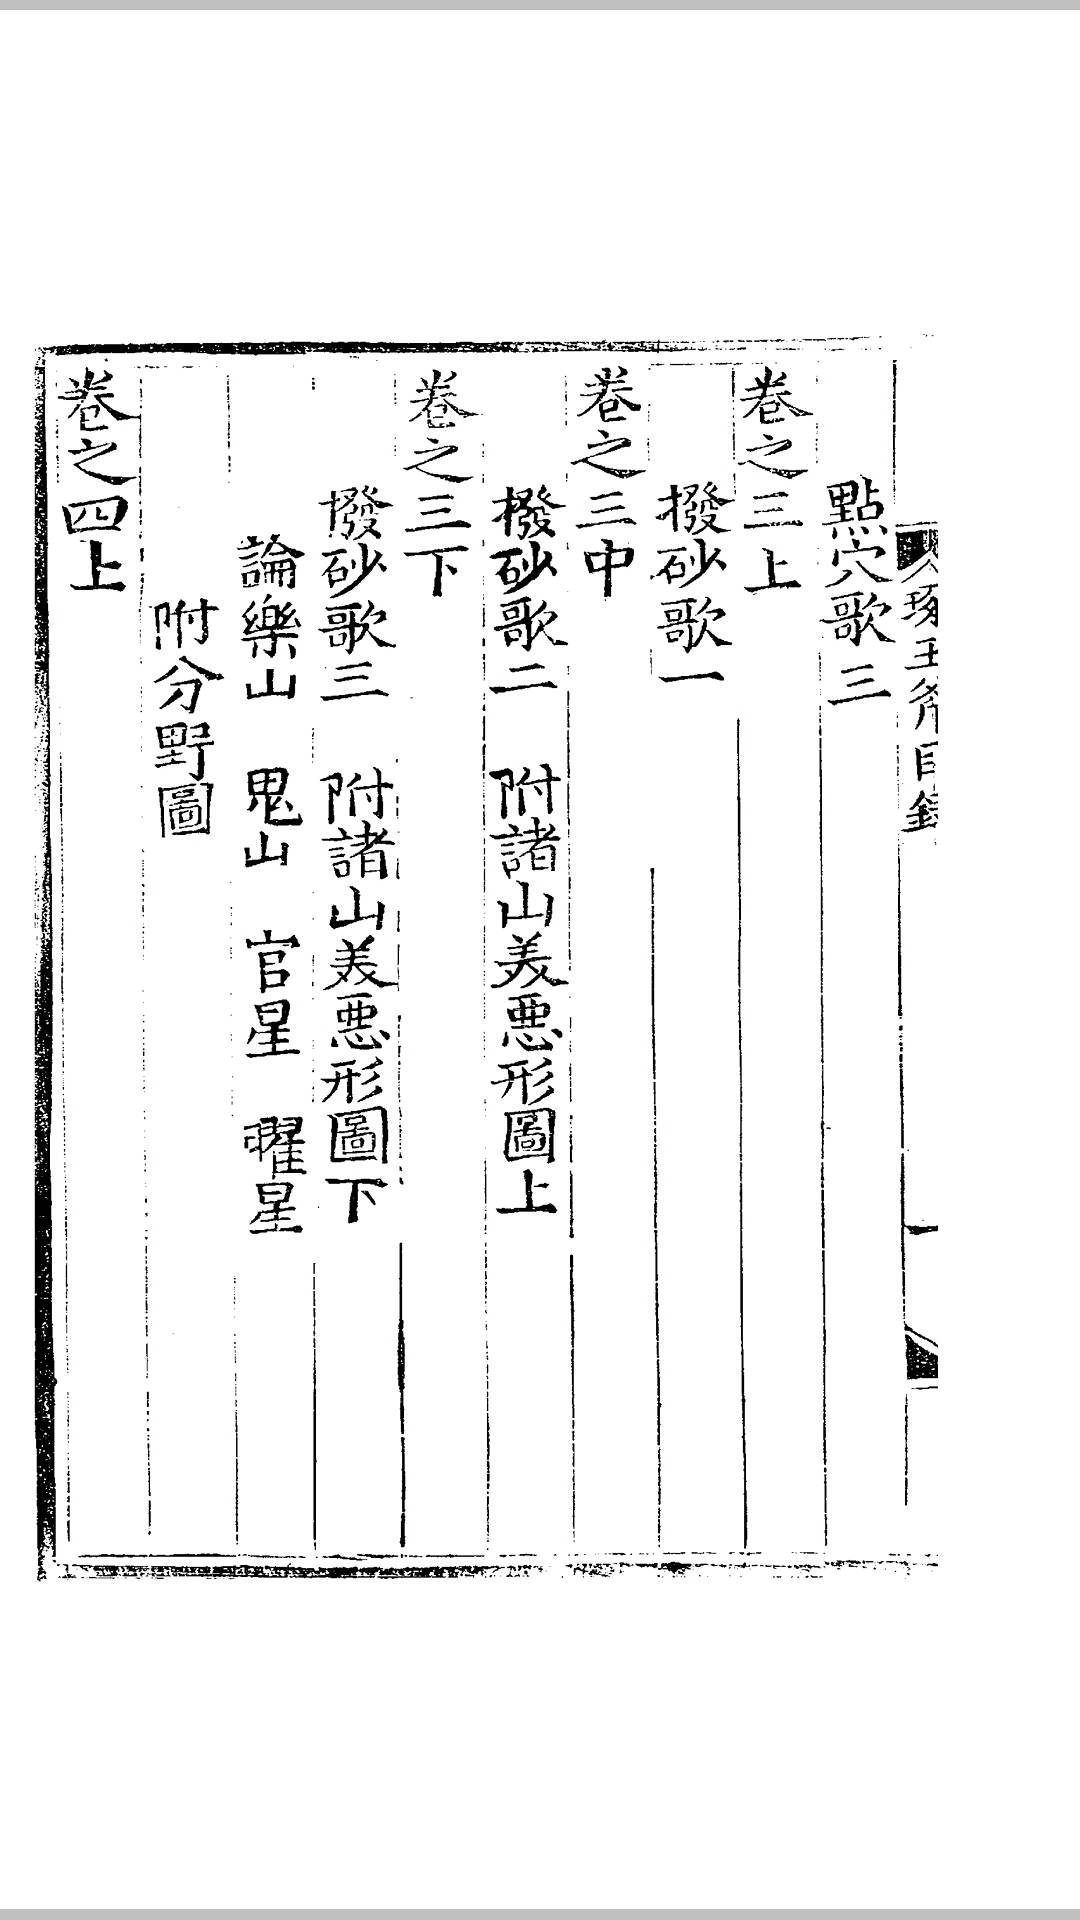 琢玉斧目錄
一
點穴歌三
卷之三上
撥砂歌一
卷之三中
撥砂歌二　附諸山美惡形圖上
卷之三下
撥砂歌三　附諸山美惡形圖下
論樂山　鬼山　官星　曜星
附分野圖
卷之四上